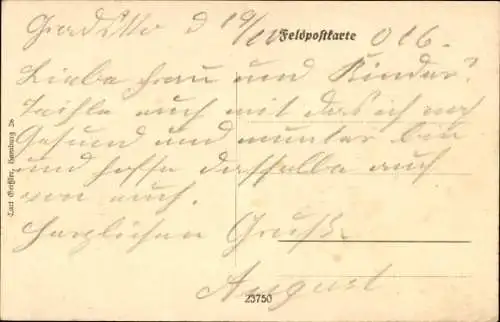 Feldpostkarte
Grodekko d 19/10 016.
Liebe Frau und Kinder!
Teihle euch mit das ich noch
Gesund und munter bin
und hoffe dasselbe auch
von euch.
Herzlichen Gruß
August
Carl Griese, Hamburg 26
23750